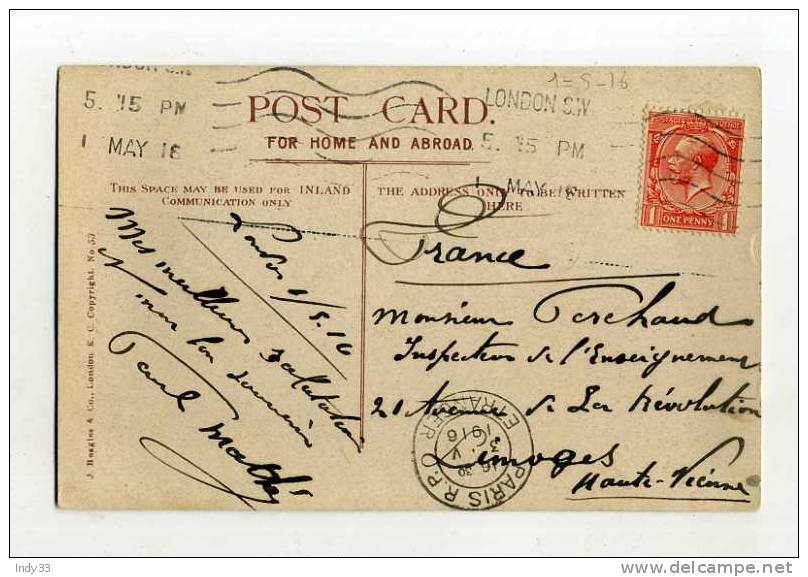 1-5-16
LONDON S.W
5. 15 PM
1 MAY 16
POST CARD.
FOR HOME AND ABROAD.
LONDON S.W
5. 15 PM
1 MAY 16
ONE PENNY
THIS SPACE MAY BE USED FOR INLAND
COMMUNICATION ONLY
THE ADDRESS ONLY TO BE WRITTEN
HERE
Londres 1/5.16
Mes meilleures salutations
Paul
France
Monsieur Perchaud
Inspecteur de l'Enseignement
21 Avenue de la Révolution
Limoges
Haute-Vienne
PARIS R.P.
ETRANGER
16 30
3. V
1916
J. Beagles & Co., London E. C. Copyright. No
Indy33
delcampe.net